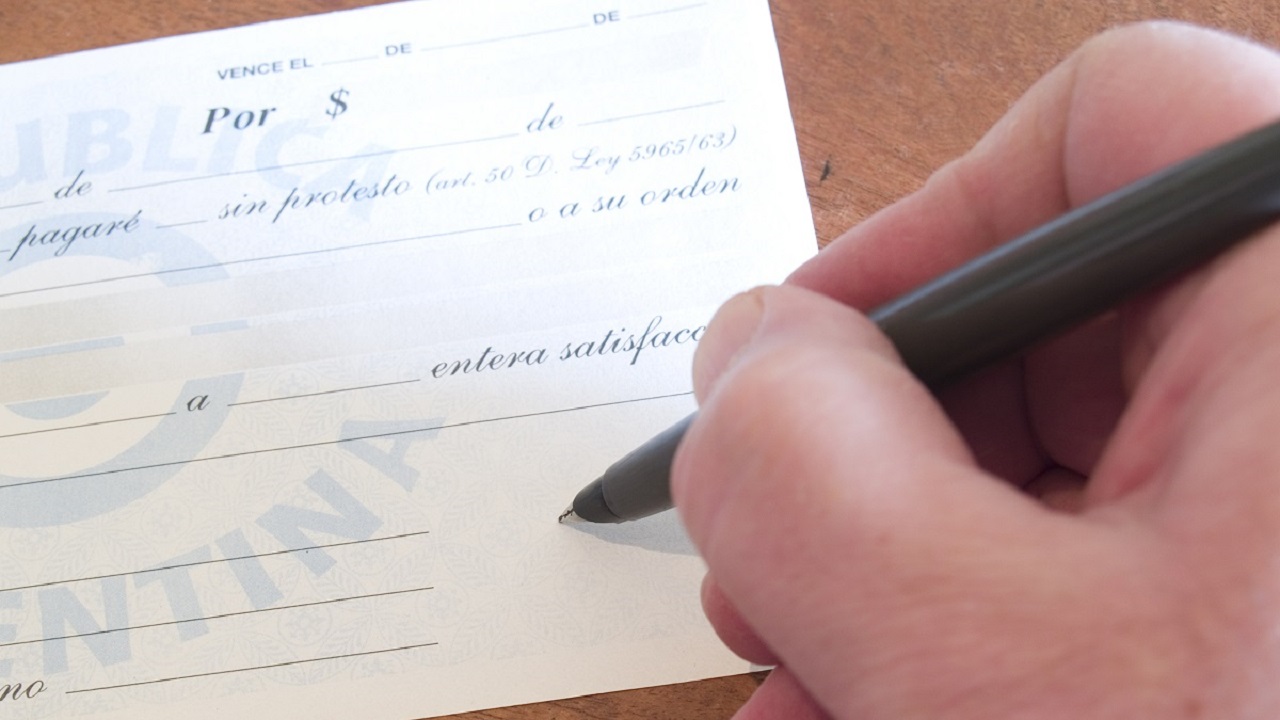 VENCE EL ____ DE ____________ DE ______
Por $
de ____________ de ______
pagaré ____ sin protesto (art. 50 D. Ley 5965/63)
____________ o a su orden
a ____________ entera
UBLICA
ENTINA